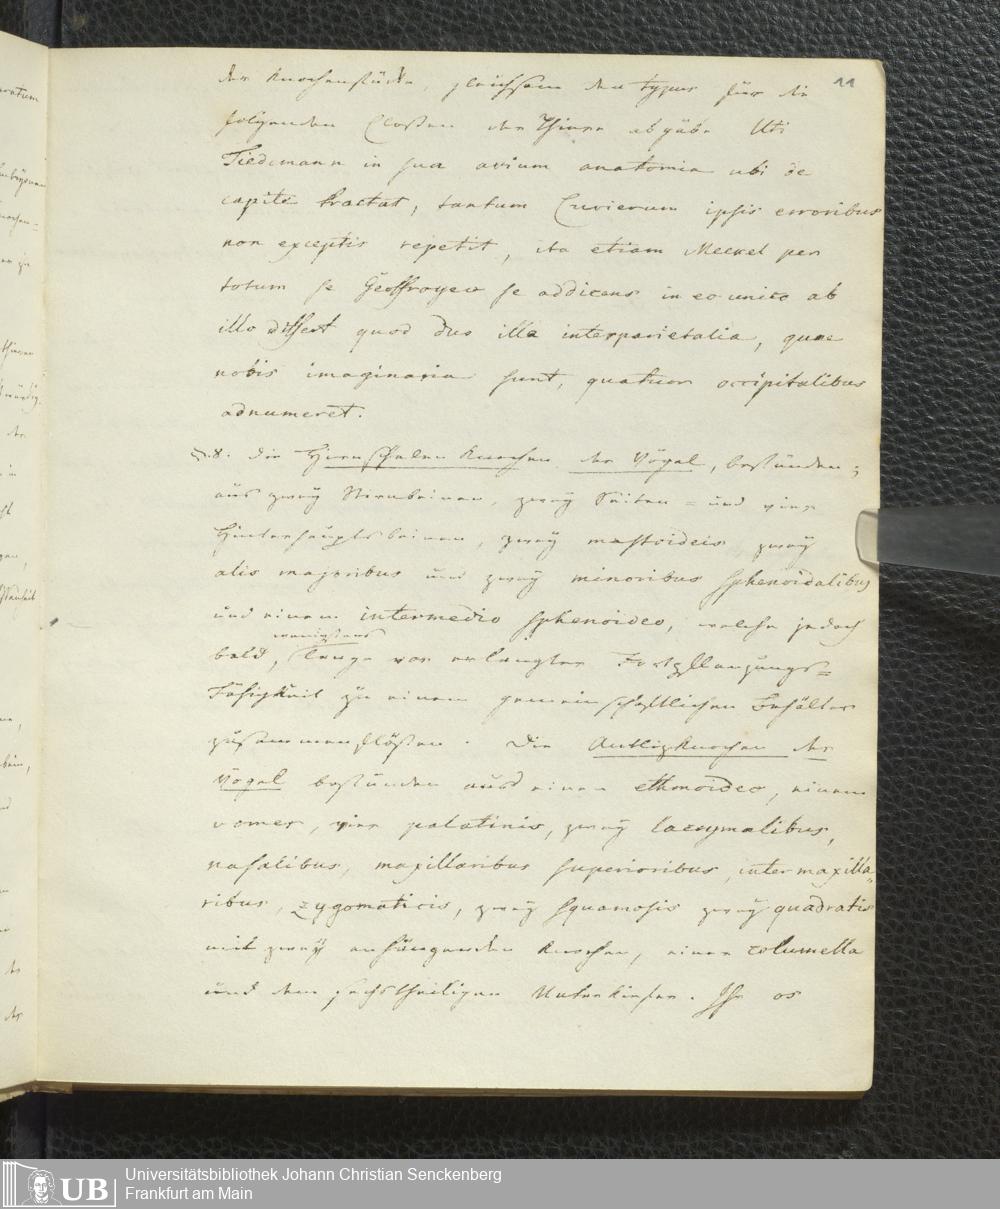 11
der Knochenstücke, gleichsam den typus für die
folgenden Classen der Thiere abgäbe Uti
Tiedemann in sua avium anatomia ubi de
capite tractat, tantum Cuvierum ipsis erroribus
non exceptis repetit, ita etiam Meckel per
totum se Geoffroyeo se addicens in eo unico ab
illo differt quod duo illa interparietalia, quae
nobis imaginaria sunt, quatuor occipitalibus
adnumeret.
§.8. Die Hirnschalen Knochen der Vögel, bestünden;
aus zweÿ Stirnbeinen, zweÿ Seiten= und vier
Hinterhauptsbeinen, zweÿ mastoideis zweÿ
alis majoribus und zweÿ minoribus sphenoidalibus
und einem intermedio sphenoideo, welche jedoch
wenigstens
bald, lange vor erlangter Fortpflanzungs=
Fähigkeit zu einem gemeinschaftlichen Behälter
zusammenflößen. Die Antlizknochen der
Vögel bestünden aus einem ethmoideo, einem
vomer, vier palatinis, zweÿ lacrymalibus,
nasalibus, maxillaribus superioribus, intermaxilla=
ribus, zygomaticis, zweÿ squamosis zweÿ quadratis
mit zweÿ anhängenden Knochen, einer columella
und dem sechstheiligen Unterkiefer. Ihr os
Universitätsbibliothek Johann Christian Senckenberg
Frankfurt am Main
UB